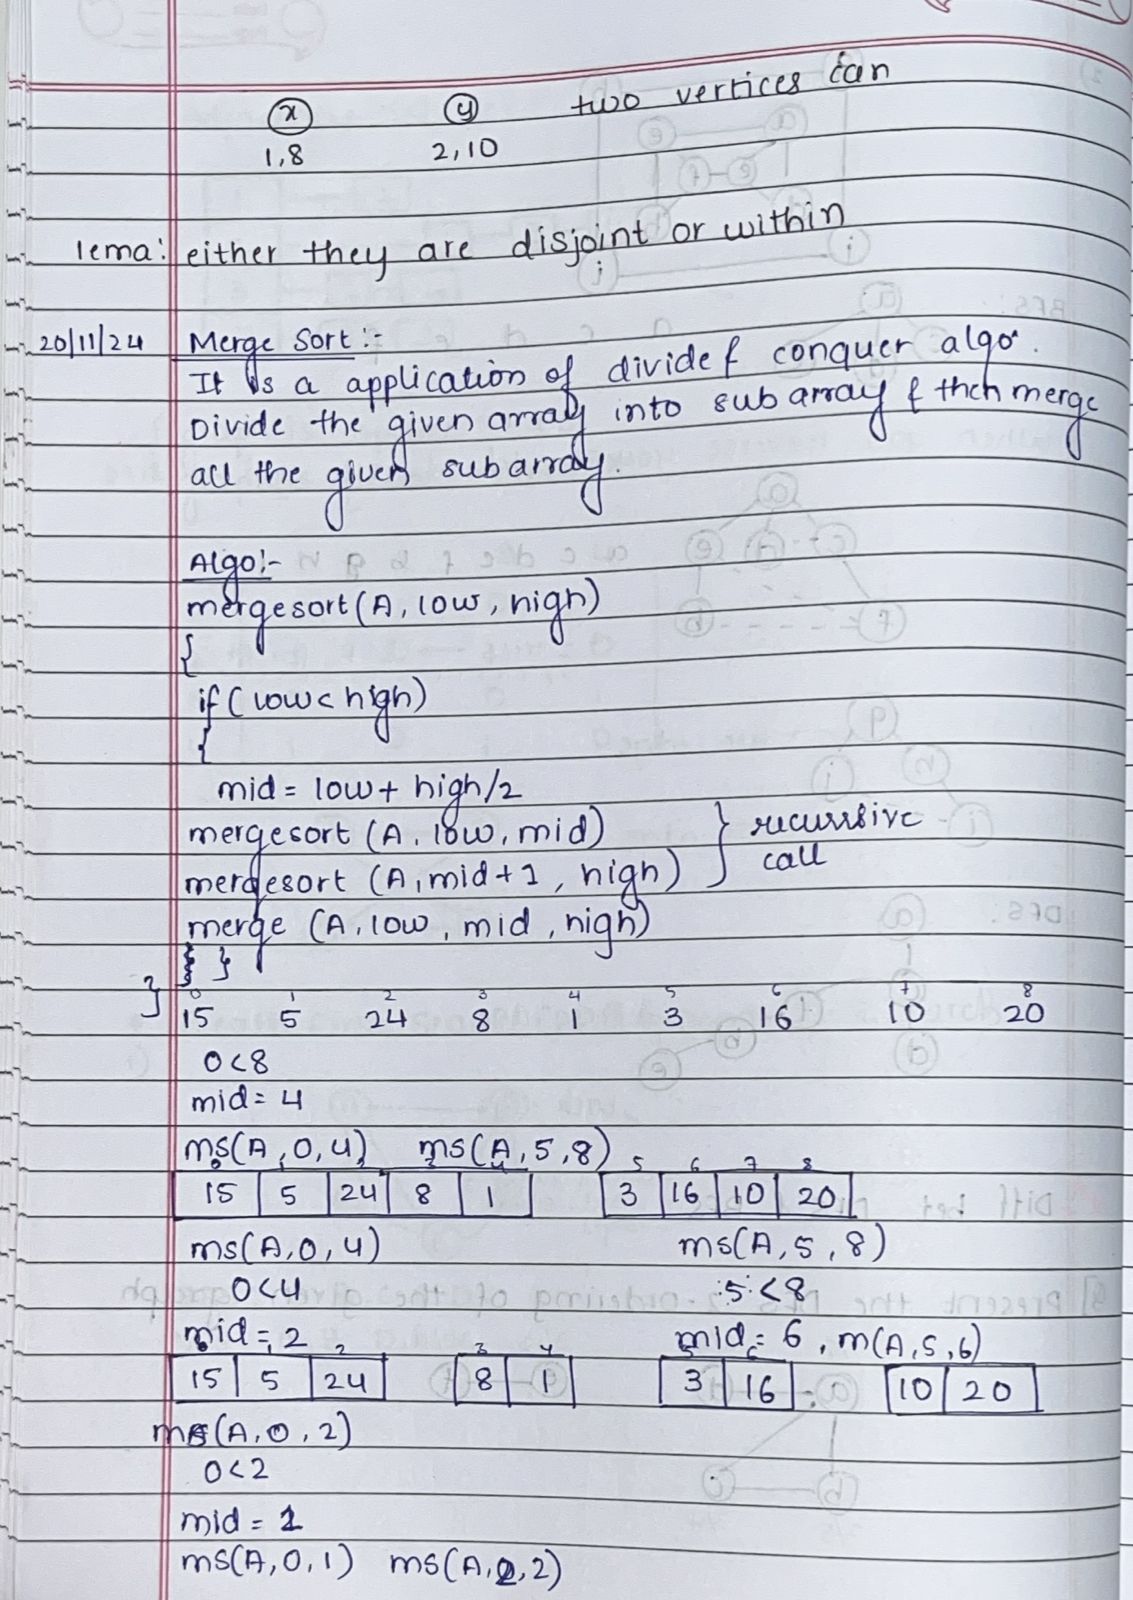 two vertices can
x y
1,8 2,10
lema: either they are disjoint or within
20/11/24 Merge Sort :-
It is a application of divide & conquer algo.
Divide the given array into sub array & then merge
all the given sub array.
Algo:-
mergesort (A, low, high)
{
if (low < high)
{
mid = low + high/2
mergesort (A, low, mid) } recurrsive
mergesort (A, mid+1, high) call
merge (A, low, mid, high)
} }
}
0 1 2 3 4 5 6 7 8
15 5 24 8 1 3 16 10 20
0<8
mid = 4
ms(A,0,4) ms(A,5,8)
0 1 2 3 4 5 6 7 8
15 5 24 8 1 3 16 10 20
ms(A,0,4) ms(A,5,8)
0<4 5<8
mid = 2 mid = 6, m(A,5,6)
0 1 2 3 4 5 6
15 5 24 8 1 3 16 10 20
ms(A,0,2)
0<2
mid = 1
ms(A,0,1) ms(A,2,2)